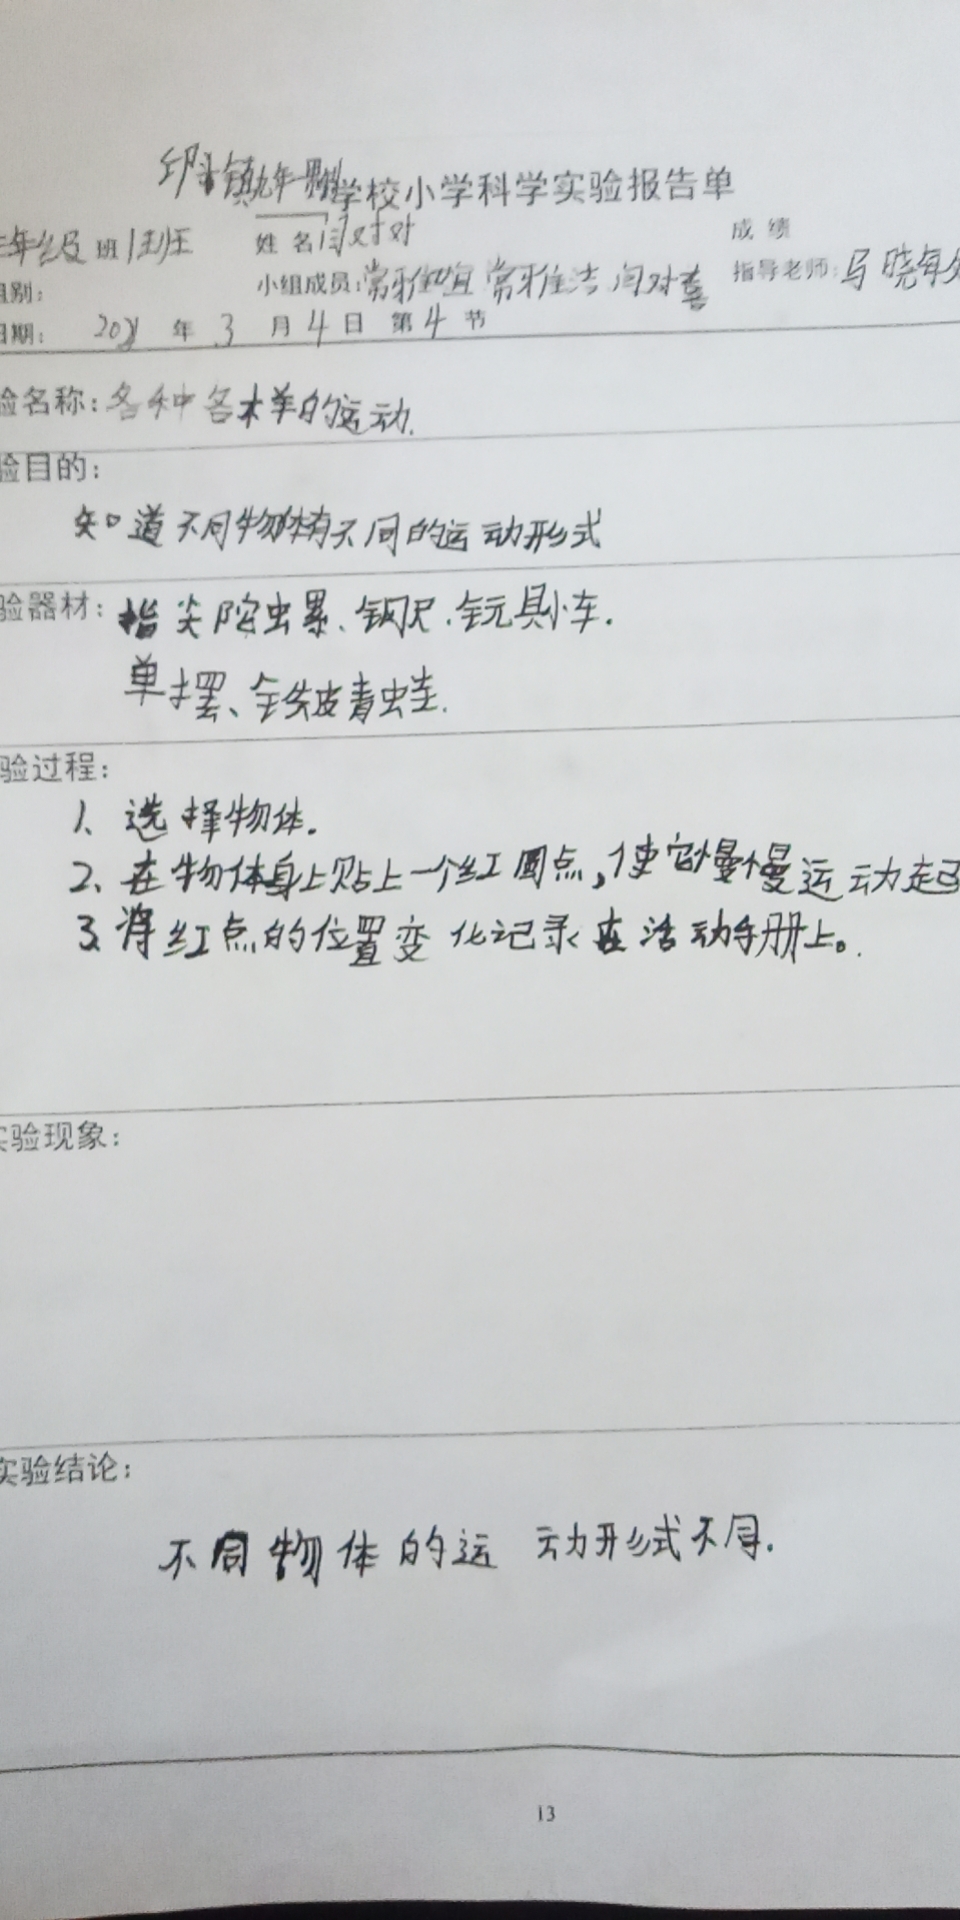 镇九年一贯制学校小学科学实验报告单
年级 班 1班 姓 名 闫对对 成 绩
组别: 小组成员: 常雅 常雅洁 闫对喜 指导老师: 马晓
日期: 2021 年 3 月 4 日 第 4 节
验名称: 各种各木羊的运动.
验目的:
知道不同物体有不同的运动形式
验器材: 指尖陀虫累、钢尺.钅元具小车.
单摆、铁皮青虫圭.
验过程:
1、选择物体.
2、在物体身上贴上一个红圆点,使它慢慢运动起
3、将红点的位置变化记录在活动手册上。.
实验现象:
实验结论:
不同物体的运动形式不同.
13